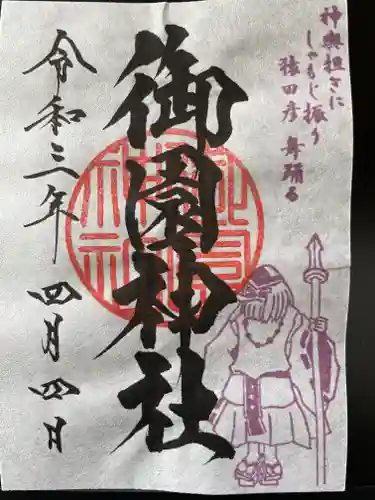 神輿担ぎに
しゃもじ振り
猿田彦 舞踊る
御園神社
令和三年 四月四日